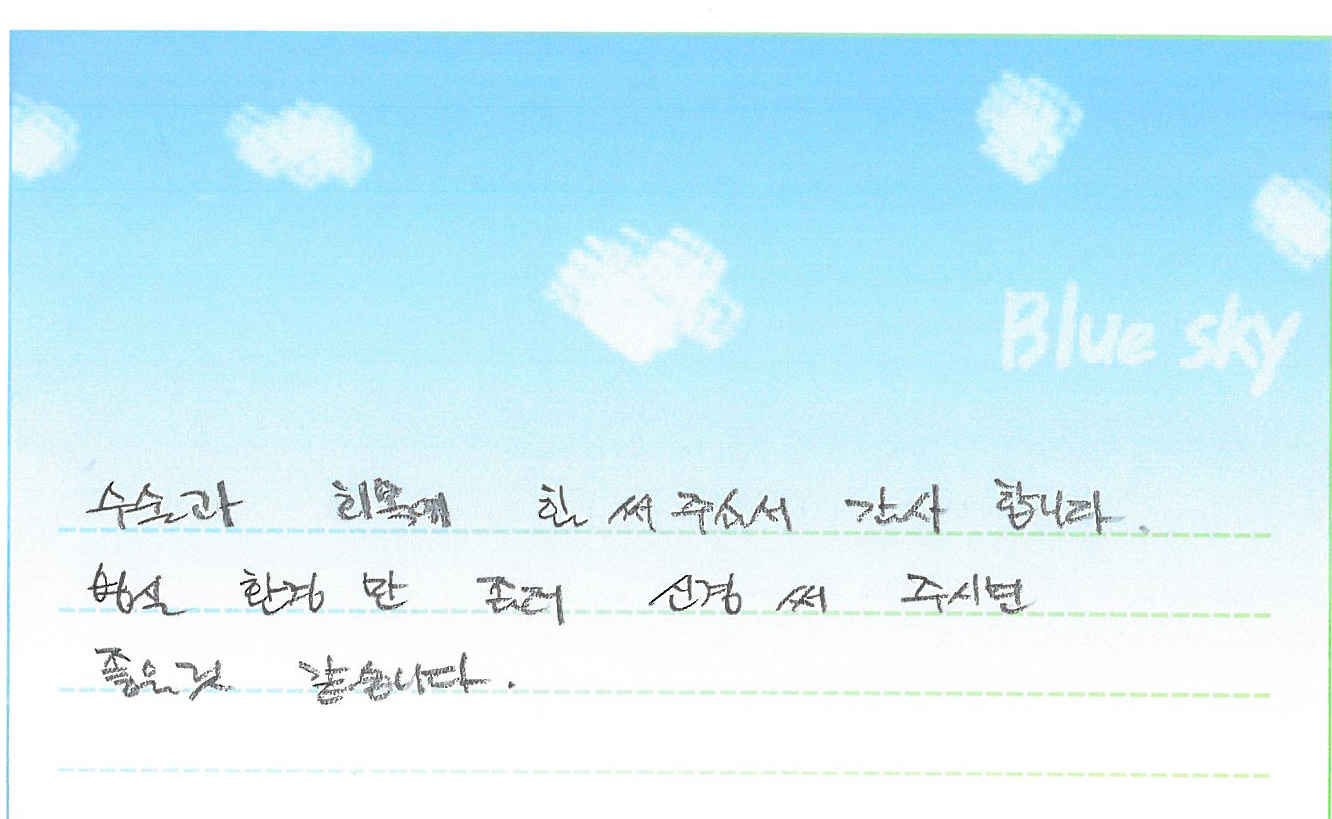 Blue sky
수술과 회복에 힘 써 주셔서 감사 합니다.
병실 환경 만 좀더 신경 써 주시면
좋을것 같습니다.